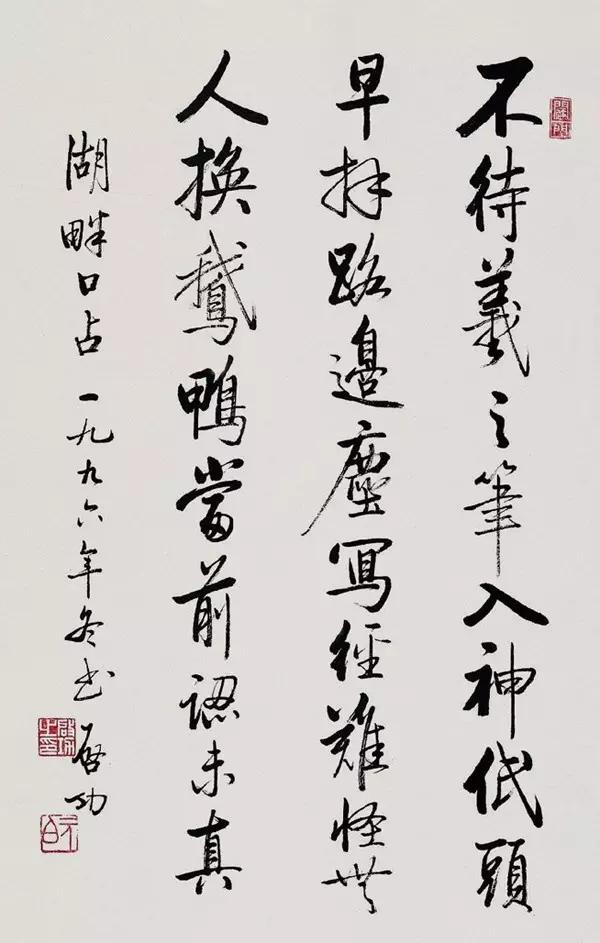 不待羲之筆入神低頭
早拜路邊塵寫經難怪無
人換鵝鴨當前認未真
湖畔口占一九九六年冬书启功